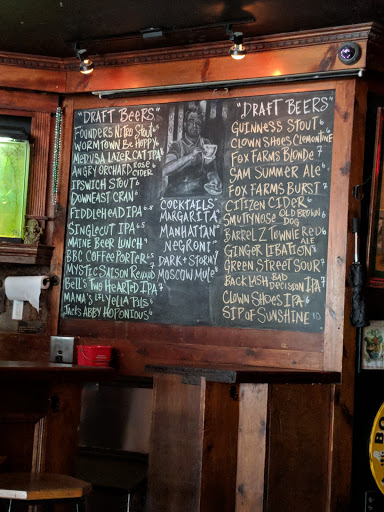 "DRAFT BEERS"
FOUNDERS NITRO STOUT 6
WORMTOWN BE HOPPY 6
MEDUSA LAZER CAT IPA
ANGRY ORCHARD ROSE CIDER
IPSWICH STOUT 6
DOWNEAST CRAN 6
FIDDLEHEAD IPA
SINGLECUT IPA
MAINE BEER LUNCH 9
BBC COFFEE PORTER
MYSTIC SAISON
BELL'S TWO HEARTED IPA 7
MAMA'S LIL YELLA PILS
JACK'S ABBY HOPONIOUS
COCKTAILS
MARGARITA
MANHATTAN
NEGRONI
DARK + STORMY
MOSCOW MULE
"DRAFT BEERS"
GUINNESS STOUT 6
CLOWN SHOES CLEMENTINE
FOX FARMS BLONDE 7
SAM SUMMER ALE 6
FOX FARMS BURST 7
CITIZEN CIDER 6
SMUTTYNOSE OLD BROWN DOG
BARREL Z TOWNIE RED ALE
GINGER LIBATION
GREEN STREET SOUR 7
BACK HISH BAD DECISION IPA 7
CLOWN SHOES IPA 6
SIP OF SUNSHINE 10